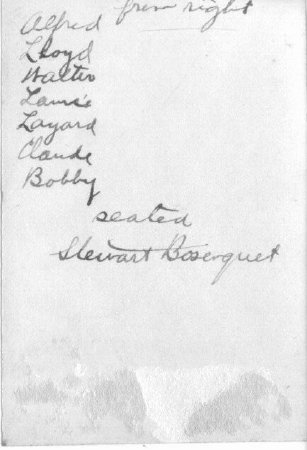 from right
Alfred
Lloyd
Walter
Laurie
Layard
Claude
Bobby
seated
Stewart Bosenquet